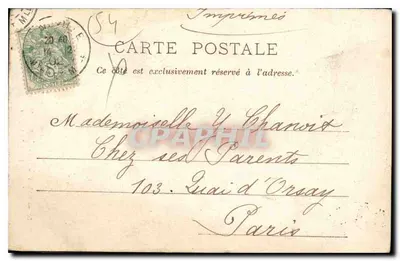 (54
Imprimés
CARTE POSTALE
Ce côté est exclusivement réservé à l'adresse.
Mademoiselle Y Chanoit
Chez ses Parents
103. Quai d'Orsay
Paris
CPARHIL